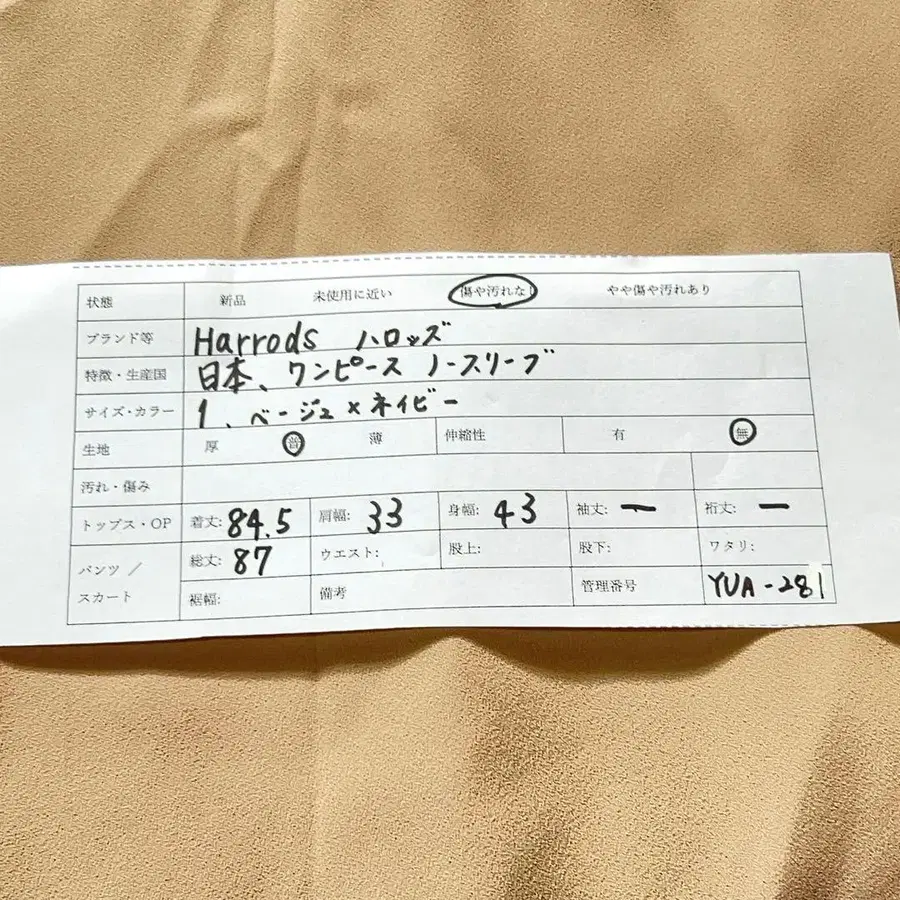 状態 新品 未使用に近い 傷や汚れなし やや傷や汚れあり
ブランド等 Harrods ハロッズ
特徴・生産国 日本、ワンピース ノースリーブ
サイズ・カラー 1、ベージュ×ネイビー
生地 厚 普 薄 伸縮性 有 無
汚れ・傷み
トップス・OP 着丈: 84.5 肩幅: 33 身幅: 43 袖丈: ー 裄丈: ー
パンツ / スカート 総丈: 87 ウエスト: 股上: 股下: ワタリ:
裾幅: 備考 管理番号 YUA-281